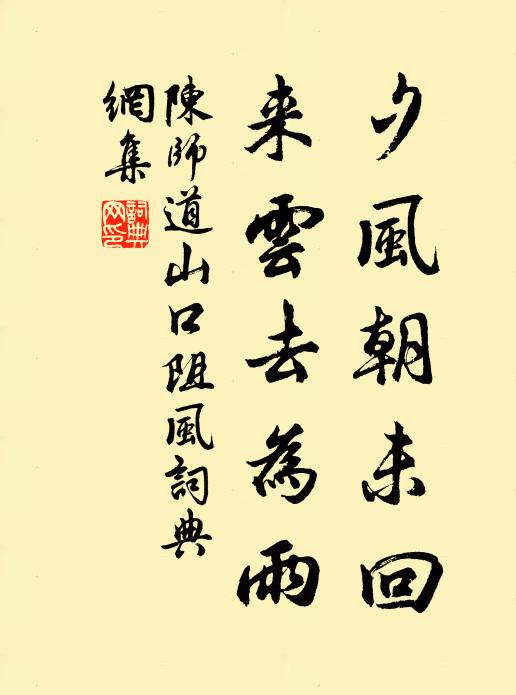 夕風朝未回
来雲去為雨
陳師道山口阻風詞典
網集
詞典
网印